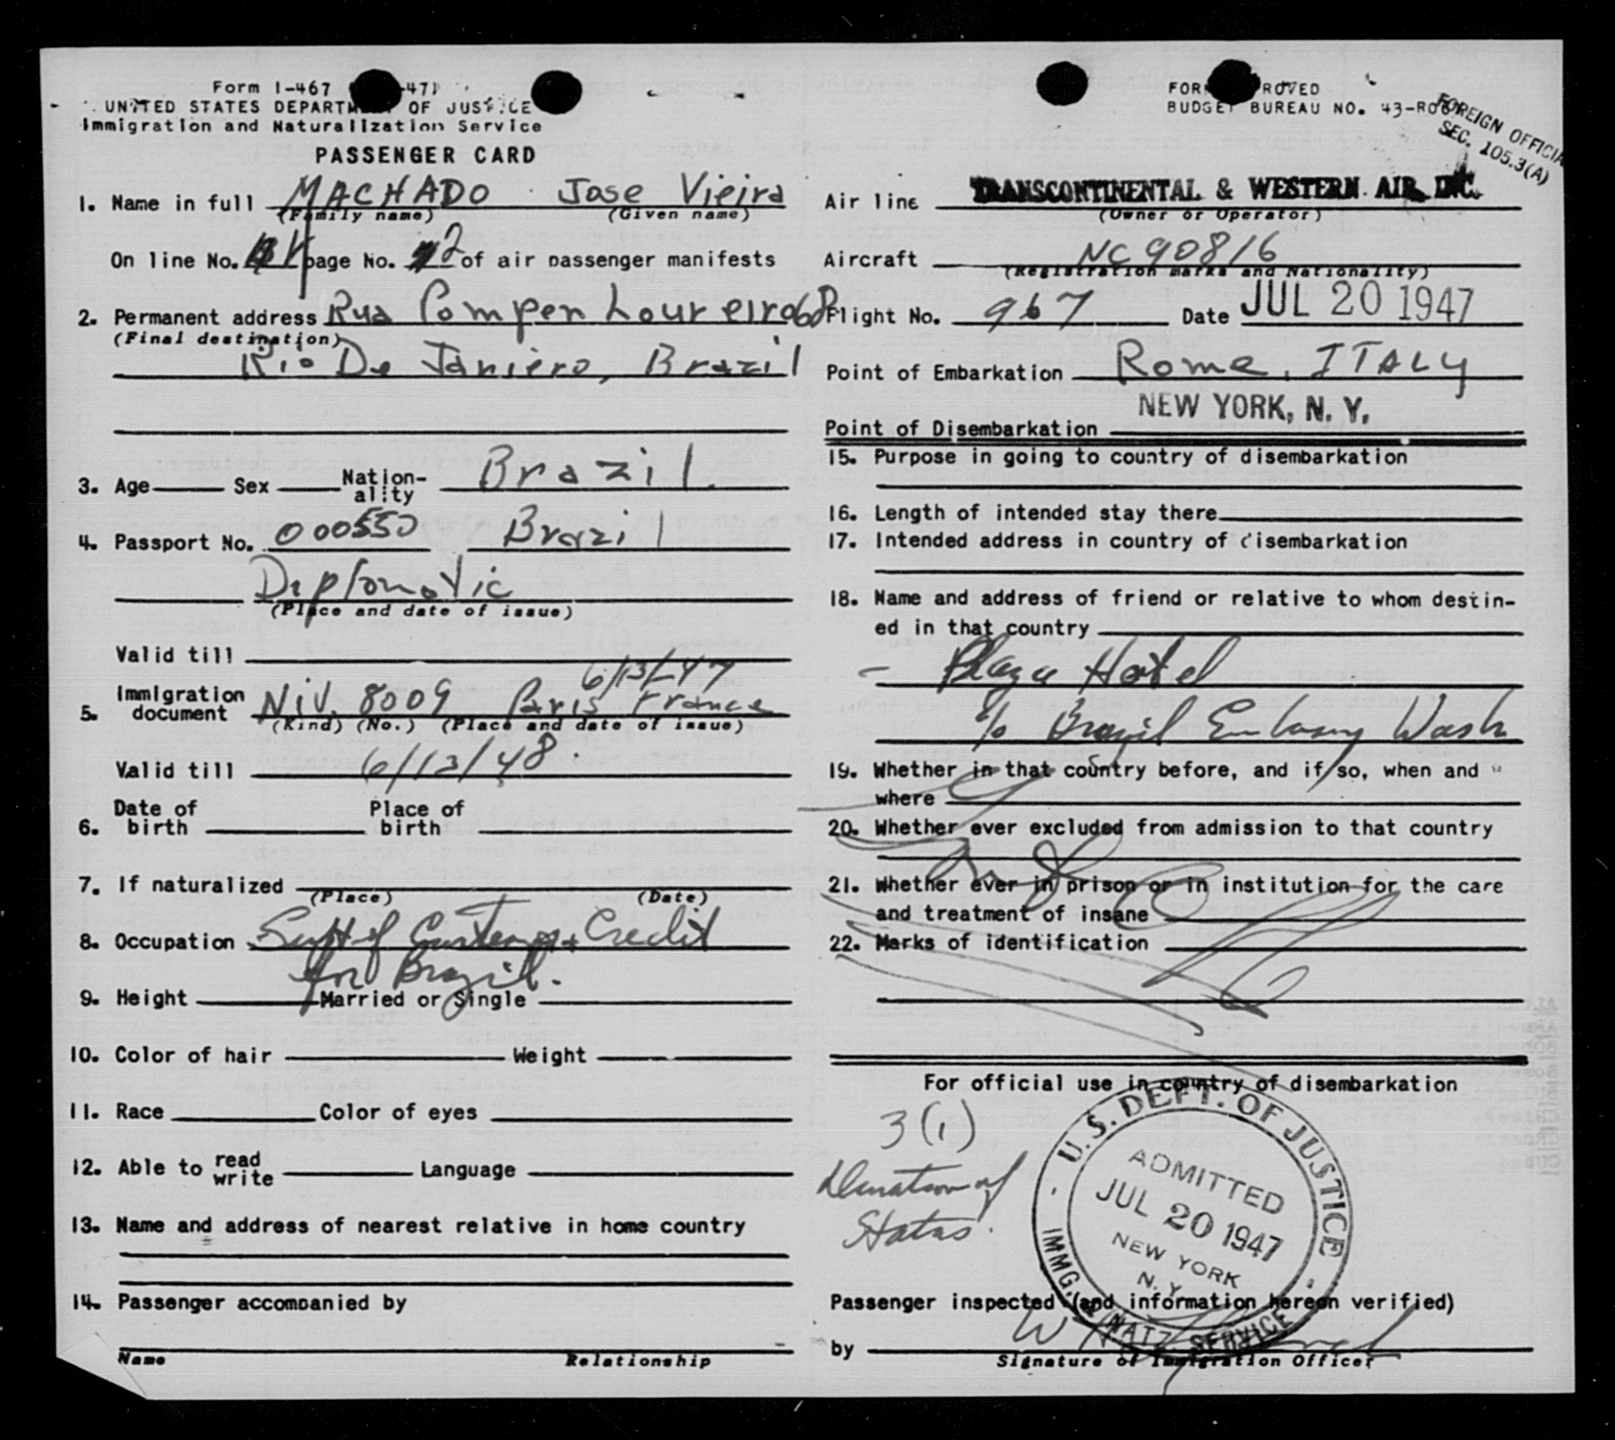 Form I-467 471
UNITED STATES DEPARTM OF JUSTICE
Immigration and Naturalization Service
PASSENGER CARD
1. Name in full MACHADO Jose Vieira
(Family name) (Given name)
On line No. page No. 2 of air passenger manifests
2. Permanent address Rua Pompen Loureiro 68
(Final destination)
Rio De Janiero, Brazil
3. Age Sex Nation-ality Brazil
4. Passport No. 000550 Brazil
Diplomatic
(Place and date of issue)
Valid till
6/13/47
5. Immigration document NIV. 8009 Paris France
(Kind) (No.) (Place and date of issue)
Valid till 6/13/48.
6. Date of birth Place of birth
7. If naturalized
(Place) (Date)
8. Occupation Supt of Customs & Credit
for Brazil.
9. Height Married or Single
10. Color of hair Weight
11. Race Color of eyes
12. Able to read write Language
13. Name and address of nearest relative in home country
14. Passenger accompanied by
Name Relationship
FOR ROVED
BUDGET BUREAU NO. 43-R0
FOREIGN OFFICIA
SEC. 105.3(A)
Air line TRANSCONTINENTAL & WESTERN AIR, INC.
(Owner or Operator)
Aircraft NC90816
(Registration marks and Nationality)
Flight No. 967 Date JUL 20 1947
Point of Embarkation Rome, ITALY
NEW YORK, N. Y.
Point of Disembarkation
15. Purpose in going to country of disembarkation
16. Length of intended stay there
17. Intended address in country of disembarkation
18. Name and address of friend or relative to whom destin-
ed in that country
- Plaza Hotel
c/o Brazil Embassy Wash
19. Whether in that country before, and if so, when and
where
20. Whether ever excluded from admission to that country
21. Whether ever in prison or in institution for the care
and treatment of insane
22. Marks of identification
For official use in country of disembarkation
3(1)
Duration of
Status.
U.S. DEPT. OF JUSTICE
ADMITTED
JUL 20 1947
NEW YORK
N. Y.
IMMG. & NATZ. SERVICE
Passenger inspected (and information hereon verified)
by
Signature of Immigration Officer